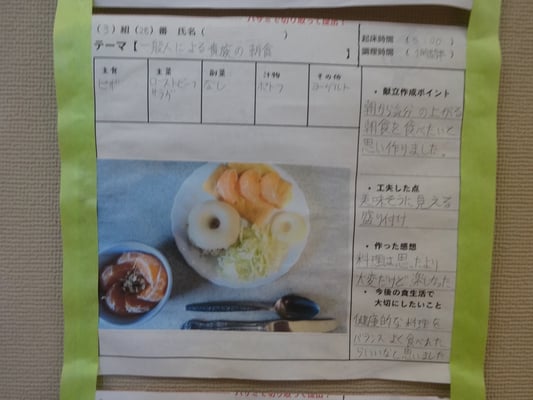 ハサミで切り取って提出!
(3)組(26)番 氏名( )
テーマ【一般人による貴族の朝食】
起床時間( 5:00 )
調理時間( )
主食 主菜 副菜 汁物 その他
ピザ ローストビーフサラダ なし ポトフ ヨーグルト
・献立作成ポイント
朝から気分の上がる
朝食を食べたいと
思い作りました。
・工夫した点
美味そうに見える
盛り付け
・作った感想
料理は思ったより
大変だけど楽しかった
・今後の食生活で
大切にしたいこと
健康的な料理を
バランスよく食べれた
らいいなと思いました
ハサミで切り取って提出!